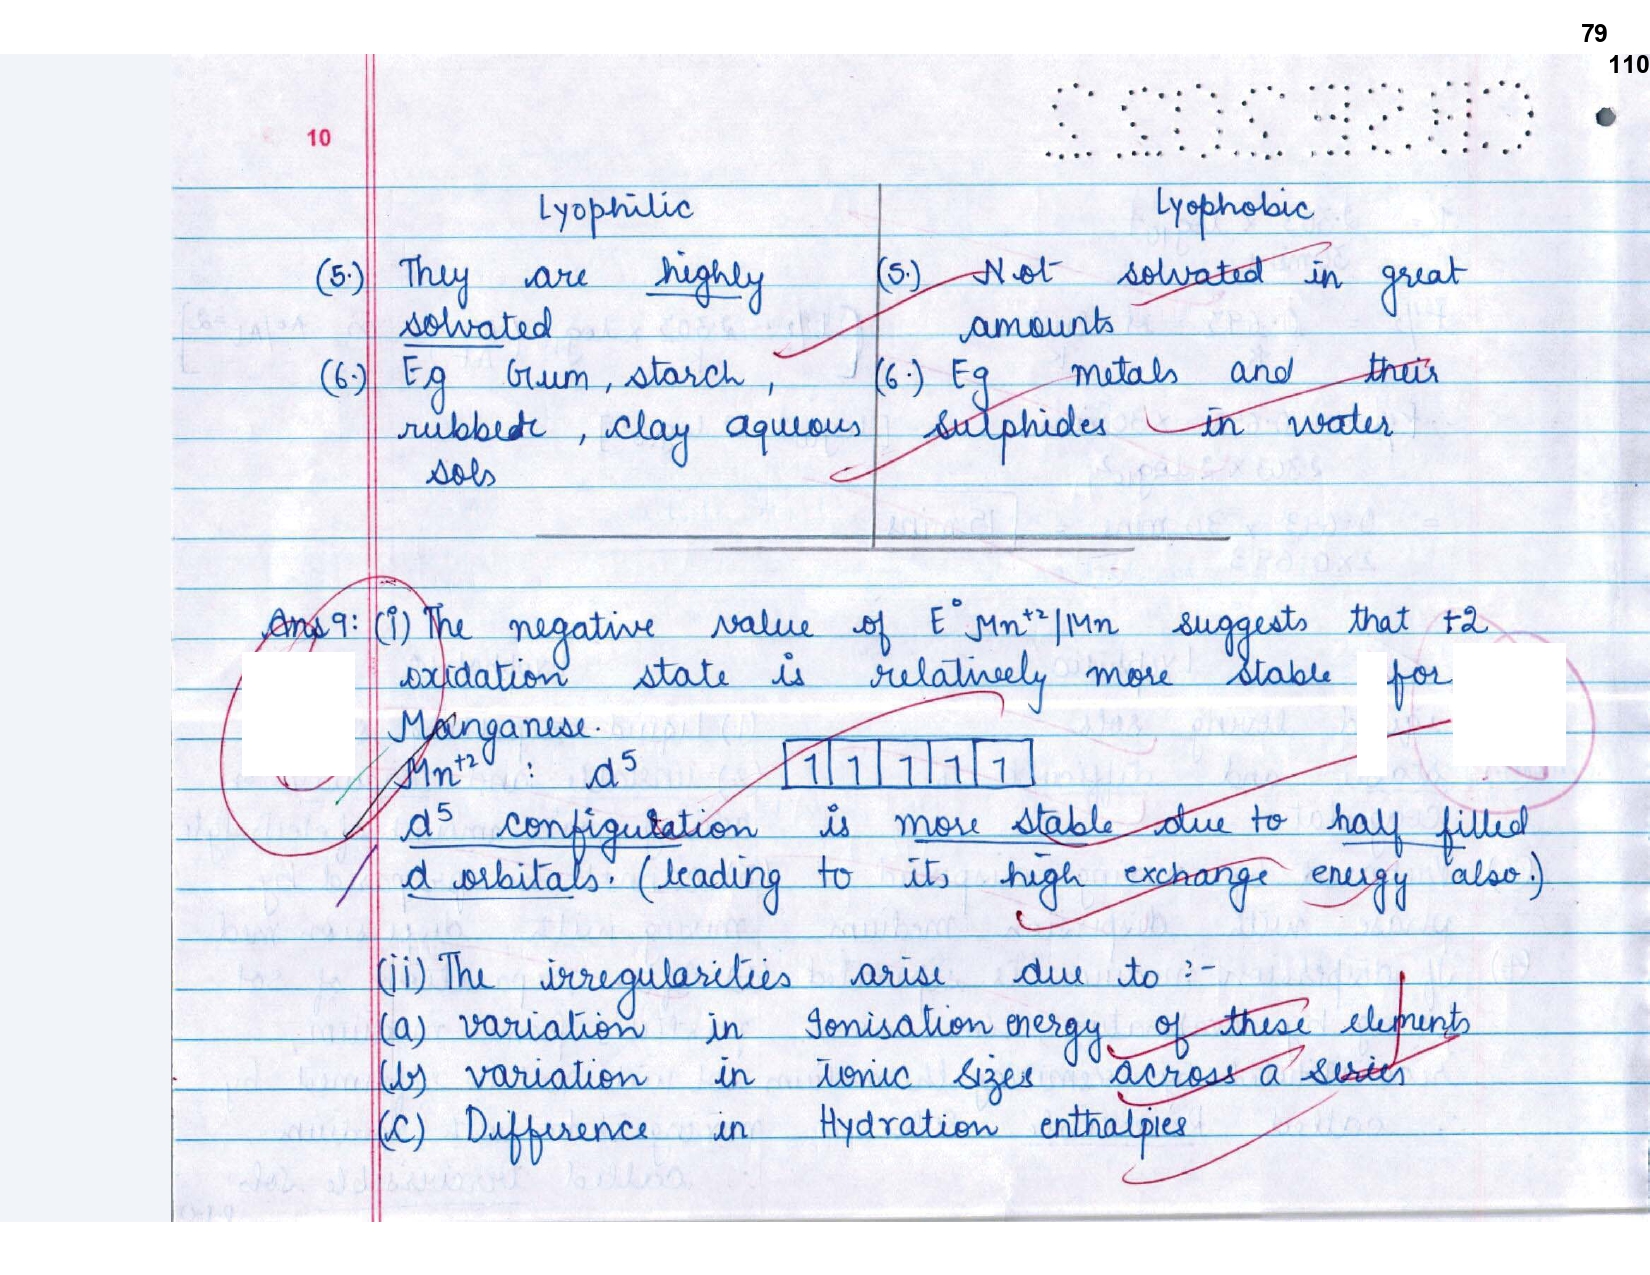 79
110
10
Lyophilic Lyophobic
(5.) They are highly (5.) Not solvated in great
solvated amounts
(6.) Eg Gum, starch, (6.) Eg metals and their
rubber, clay aqueous sulphides in water
sols
Ans 9: (i) The negative value of E° Mn+2/Mn suggests that +2
oxidation state is relatively more stable for
Manganese.
Mn+2 : d5 1 1 1 1 1
d5 configuration is more stable due to half filled
d orbitals. (leading to its high exchange energy also.)
(ii) The irregularities arise due to :-
(a) variation in Ionisation energy of these elements
(b) variation in ionic sizes across a series
(c) Difference in Hydration enthalpies